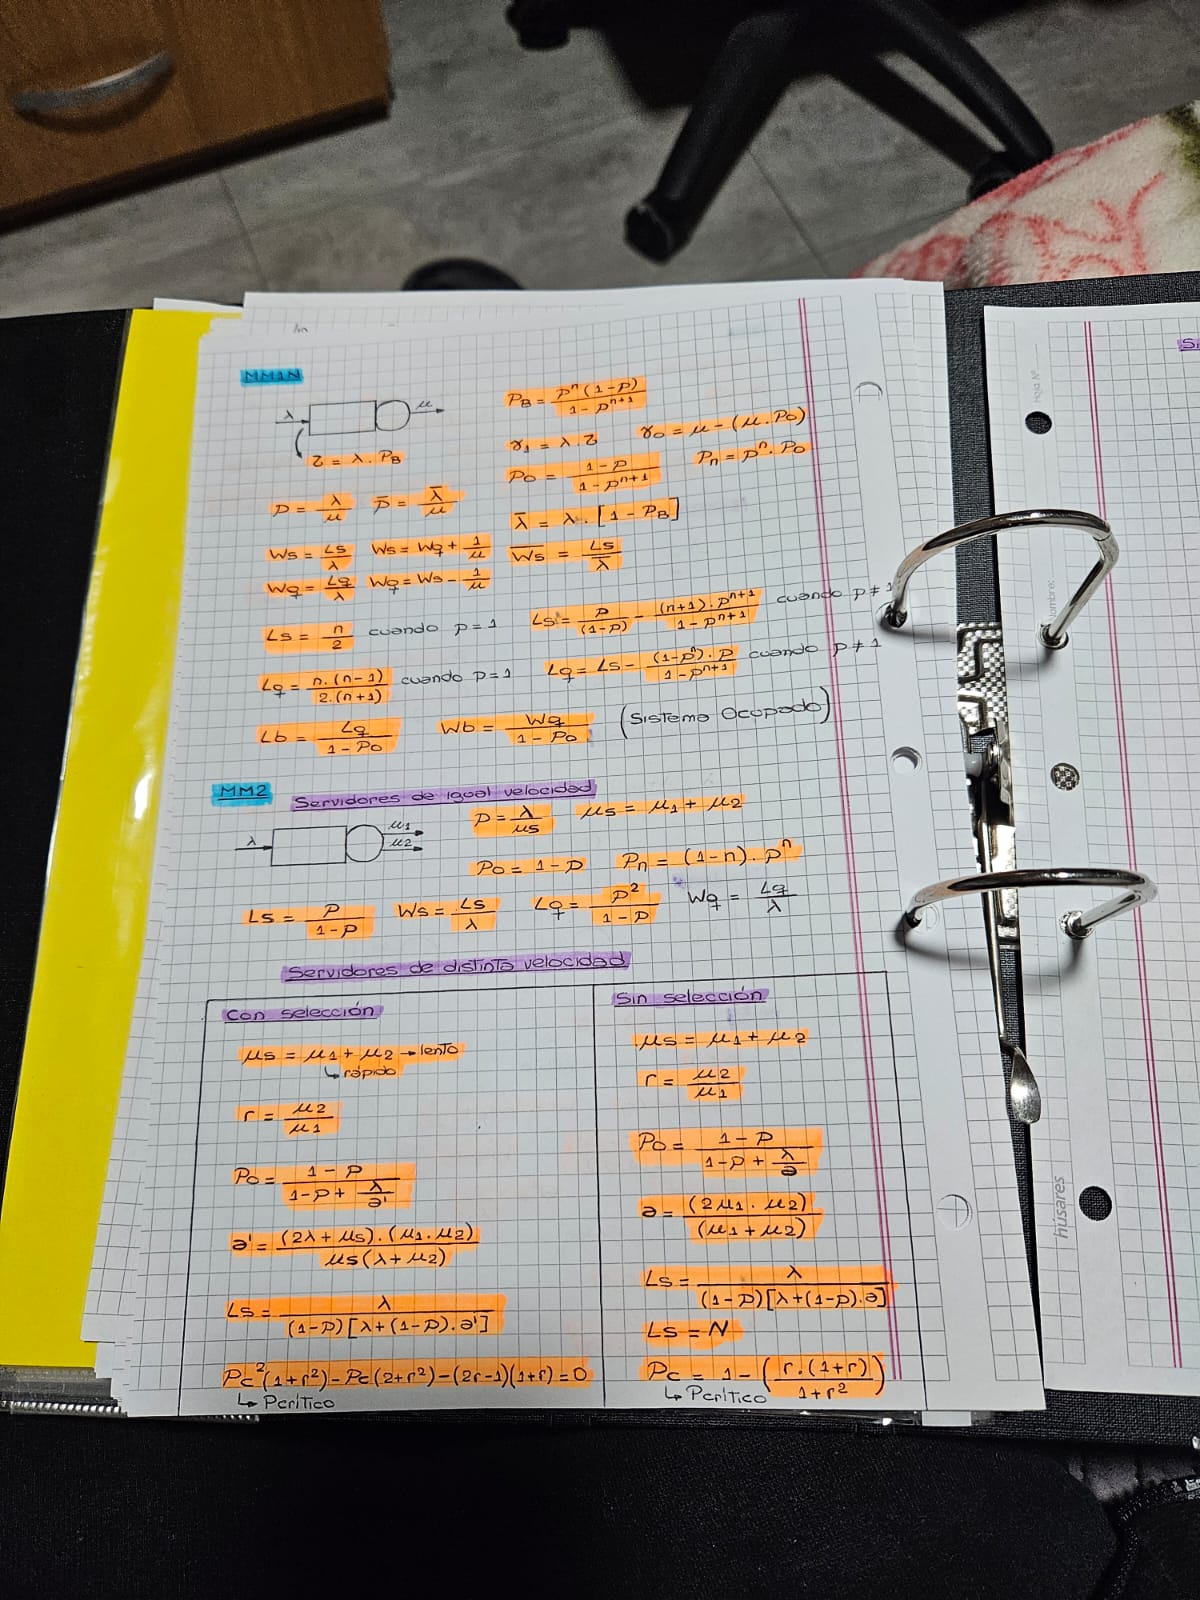 MM1N
λ μ
τ = λ · PB
PB = ρⁿ(1-ρ) / 1-ρⁿ⁺¹
γ1 = λ · τ γ0 = μ - (μ · P0)
P0 = 1-ρ / 1-ρⁿ⁺¹ Pn = ρⁿ · P0
ρ = λ/μ ρ̄ = λ̄/μ
λ̄ = λ · [1 - PB]
Ws = Ls/λ Ws = Wq + 1/μ W̄s = Ls/λ̄
Wq = Lq/λ Wq = Ws - 1/μ
Ls = n/2 cuando ρ=1 Ls = ρ/(1-ρ) - (n+1)·ρⁿ⁺¹/1-ρⁿ⁺¹ cuando ρ≠1
Lq = n·(n-1)/2·(n+1) cuando ρ=1 Lq = Ls - (1-ρⁿ)·ρ/1-ρⁿ⁺¹ cuando ρ≠1
Lb = Lq/1-P0 Wb = Wq/1-P0 (Sistema Ocupado)
MM2 Servidores de igual velocidad
λ μ1
μ2
ρ = λ/μs μs = μ1 + μ2
P0 = 1-ρ Pn = (1-n)·ρⁿ
Ls = ρ/1-ρ Ws = Ls/λ Lq = ρ²/1-ρ Wq = Lq/λ
Servidores de distinta velocidad
Con selección
μs = μ1 + μ2 → lento
↳ rápido
r = μ2/μ1
P0 = 1-ρ / 1-ρ + λ/a'
a' = (2λ + μs)·(μ1·μ2) / μs(λ + μ2)
Ls = λ / (1-ρ)[λ+(1-ρ)·a']
Pc²(1+r²) - Pc(2+r²) - (2r-1)(1+r) = 0
↳ Pcrítico
Sin selección
μs = μ1 + μ2
r = μ2/μ1
P0 = 1-ρ / 1-ρ + λ/a
a = (2μ1 · μ2) / (μ1 + μ2)
Ls = λ / (1-ρ)[λ+(1-ρ)·a]
Ls = N
Pc = 1 - (r·(1+r) / 1+r²)
↳ Pcrítico
Hoja Nº
húsares